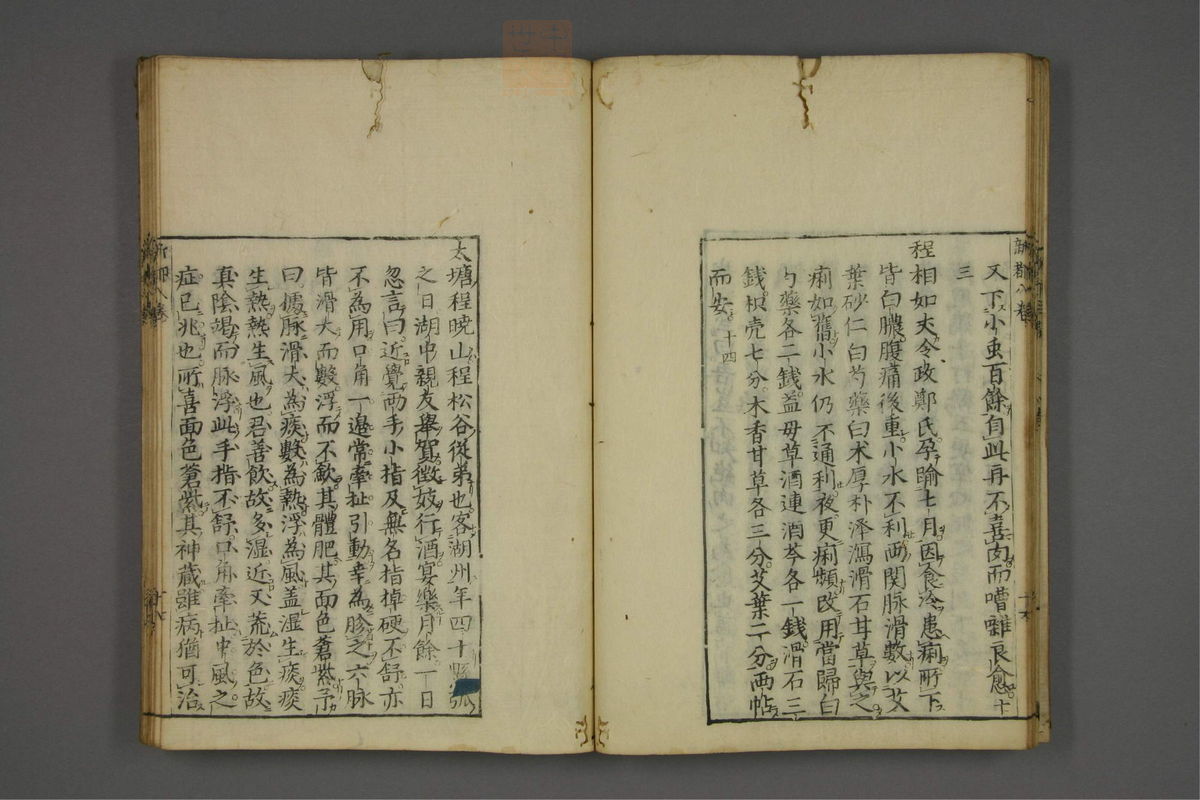 又下小虫百餘自此再不喜肉而嘈雜良愈十
三
程相如丈令政鄭氏孕踰七月因食冷患痢所下
皆白膿腹痛後重小水不利兩関脉滑數以艾
葉砂仁白芍藥白术厚朴泽瀉滑石甘草與之
痢如舊小水仍不通利夜更痢頻改用當歸白
勺藥各二錢益母草酒連酒芩各一錢滑石三
錢枳壳七分木香甘草各三分艾葉二分兩帖
而安十四
太塘程曉山程松谷從弟也客湖州年四十懸弧
之日湖中親友舉賀徵妓行酒宴樂月餘一日
忽言曰近覺兩手小指及無名指掉硬不舒亦
不為用口角一邉常牽扯引動幸為胗之六脉
皆滑大而數浮而不歛其體肥其面色蒼紫予
曰據脉滑大為痰數為熱浮為風盖湿生痰痰
生熱熱生風也君善飲故多湿近又荒於色故
真陰竭而脉浮此手指不舒口角牽扯中風之
症已兆也所喜面色蒼紫其神蔵雖病猶可治